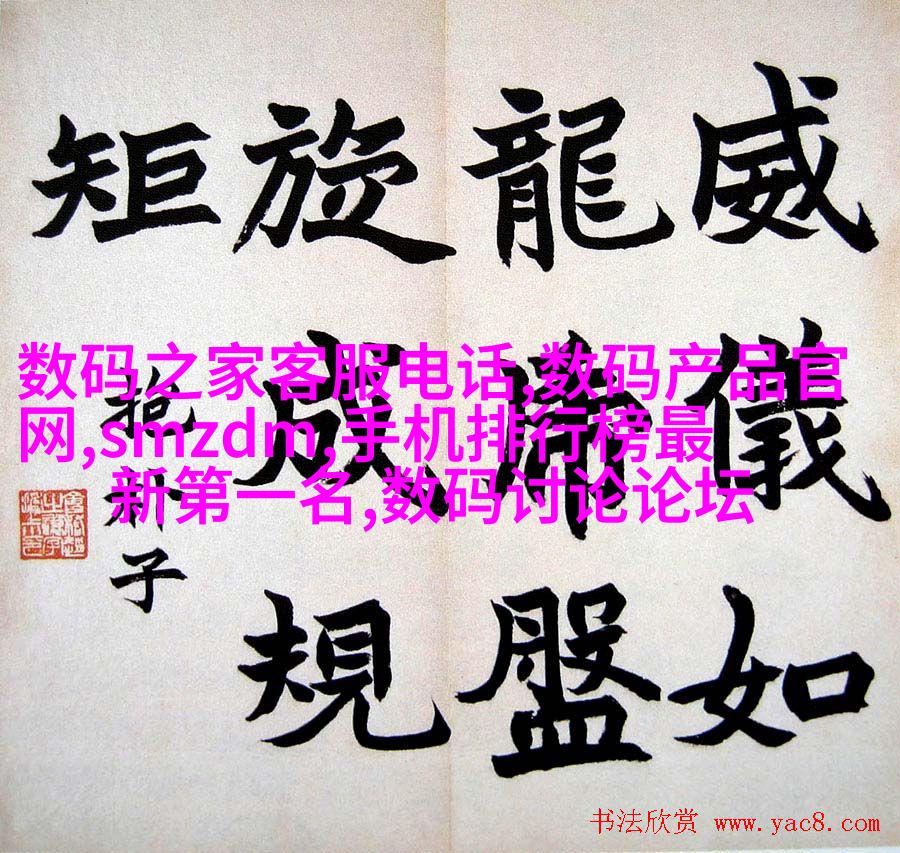 威儀如
龍盤
旋成規
矩
抱朴子
数码之家客服电话,数码产品官
网,smzdm,手机排行榜最
新第一名,数码讨论论坛
书法欣赏 www.yac8.com